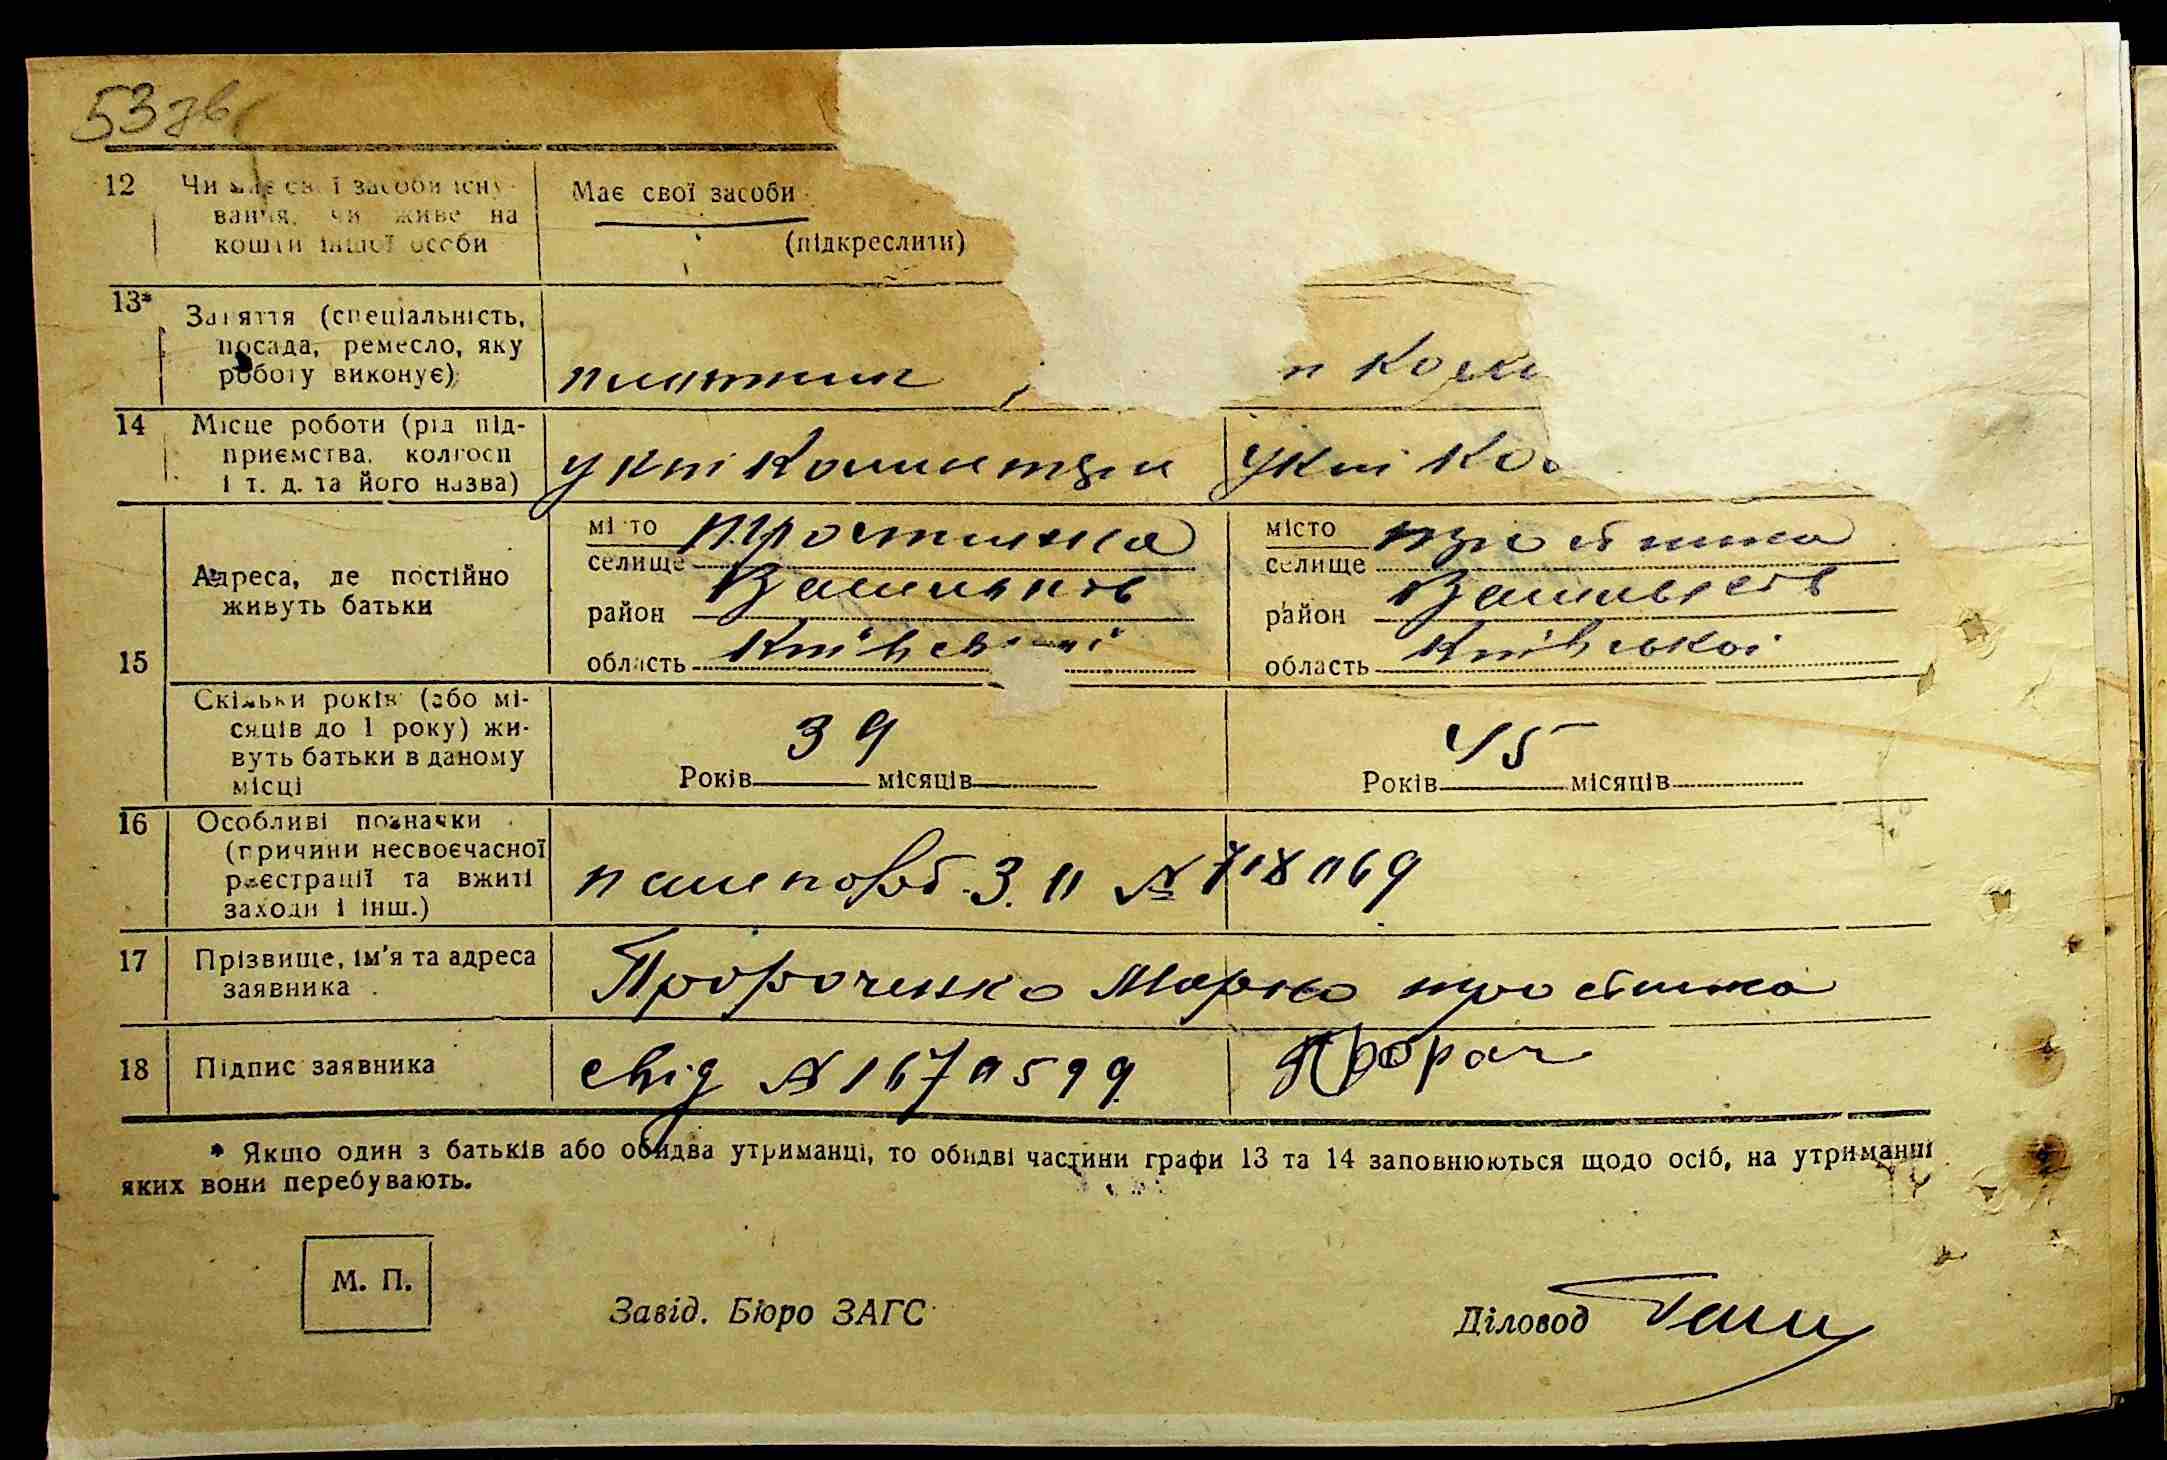 53 зв
12 Чи має свої засоби існу- Має свої засоби
вання, чи живе на
кошти іншої особи (підкреслити)
13* Заняття (спеціальність,
посада, ремесло, яку
роботу виконує) плотник
14 Місце роботи (рід під-
приємства, колгосп
і т. д. та його назва)
15 Адреса, де постійно
живуть батьки
місто Тростинка місто Тростинка
селище селище
район Васильків район Васильків
область Київської область Київської
Скільки років (або мі-
сяців до 1 року) жи-
вуть батьки в даному
місці
39 45
Років місяців Років місяців
16 Особливі позначки
(причини несвоєчасної
реєстрації та вжиті
заходи і інш.)
пашпорт З. П № 718069
17 Прізвище, ім'я та адреса
заявника
Пророченко Марко тростинка
18 Підпис заявника свід № Пророч
* Якшо один з батьків або обидва утриманці, то обидві частини графи 13 та 14 заповнюються щодо осіб, на утриманні
яких вони перебувають.
М. П.
Завід. Бюро ЗАГС Діловод